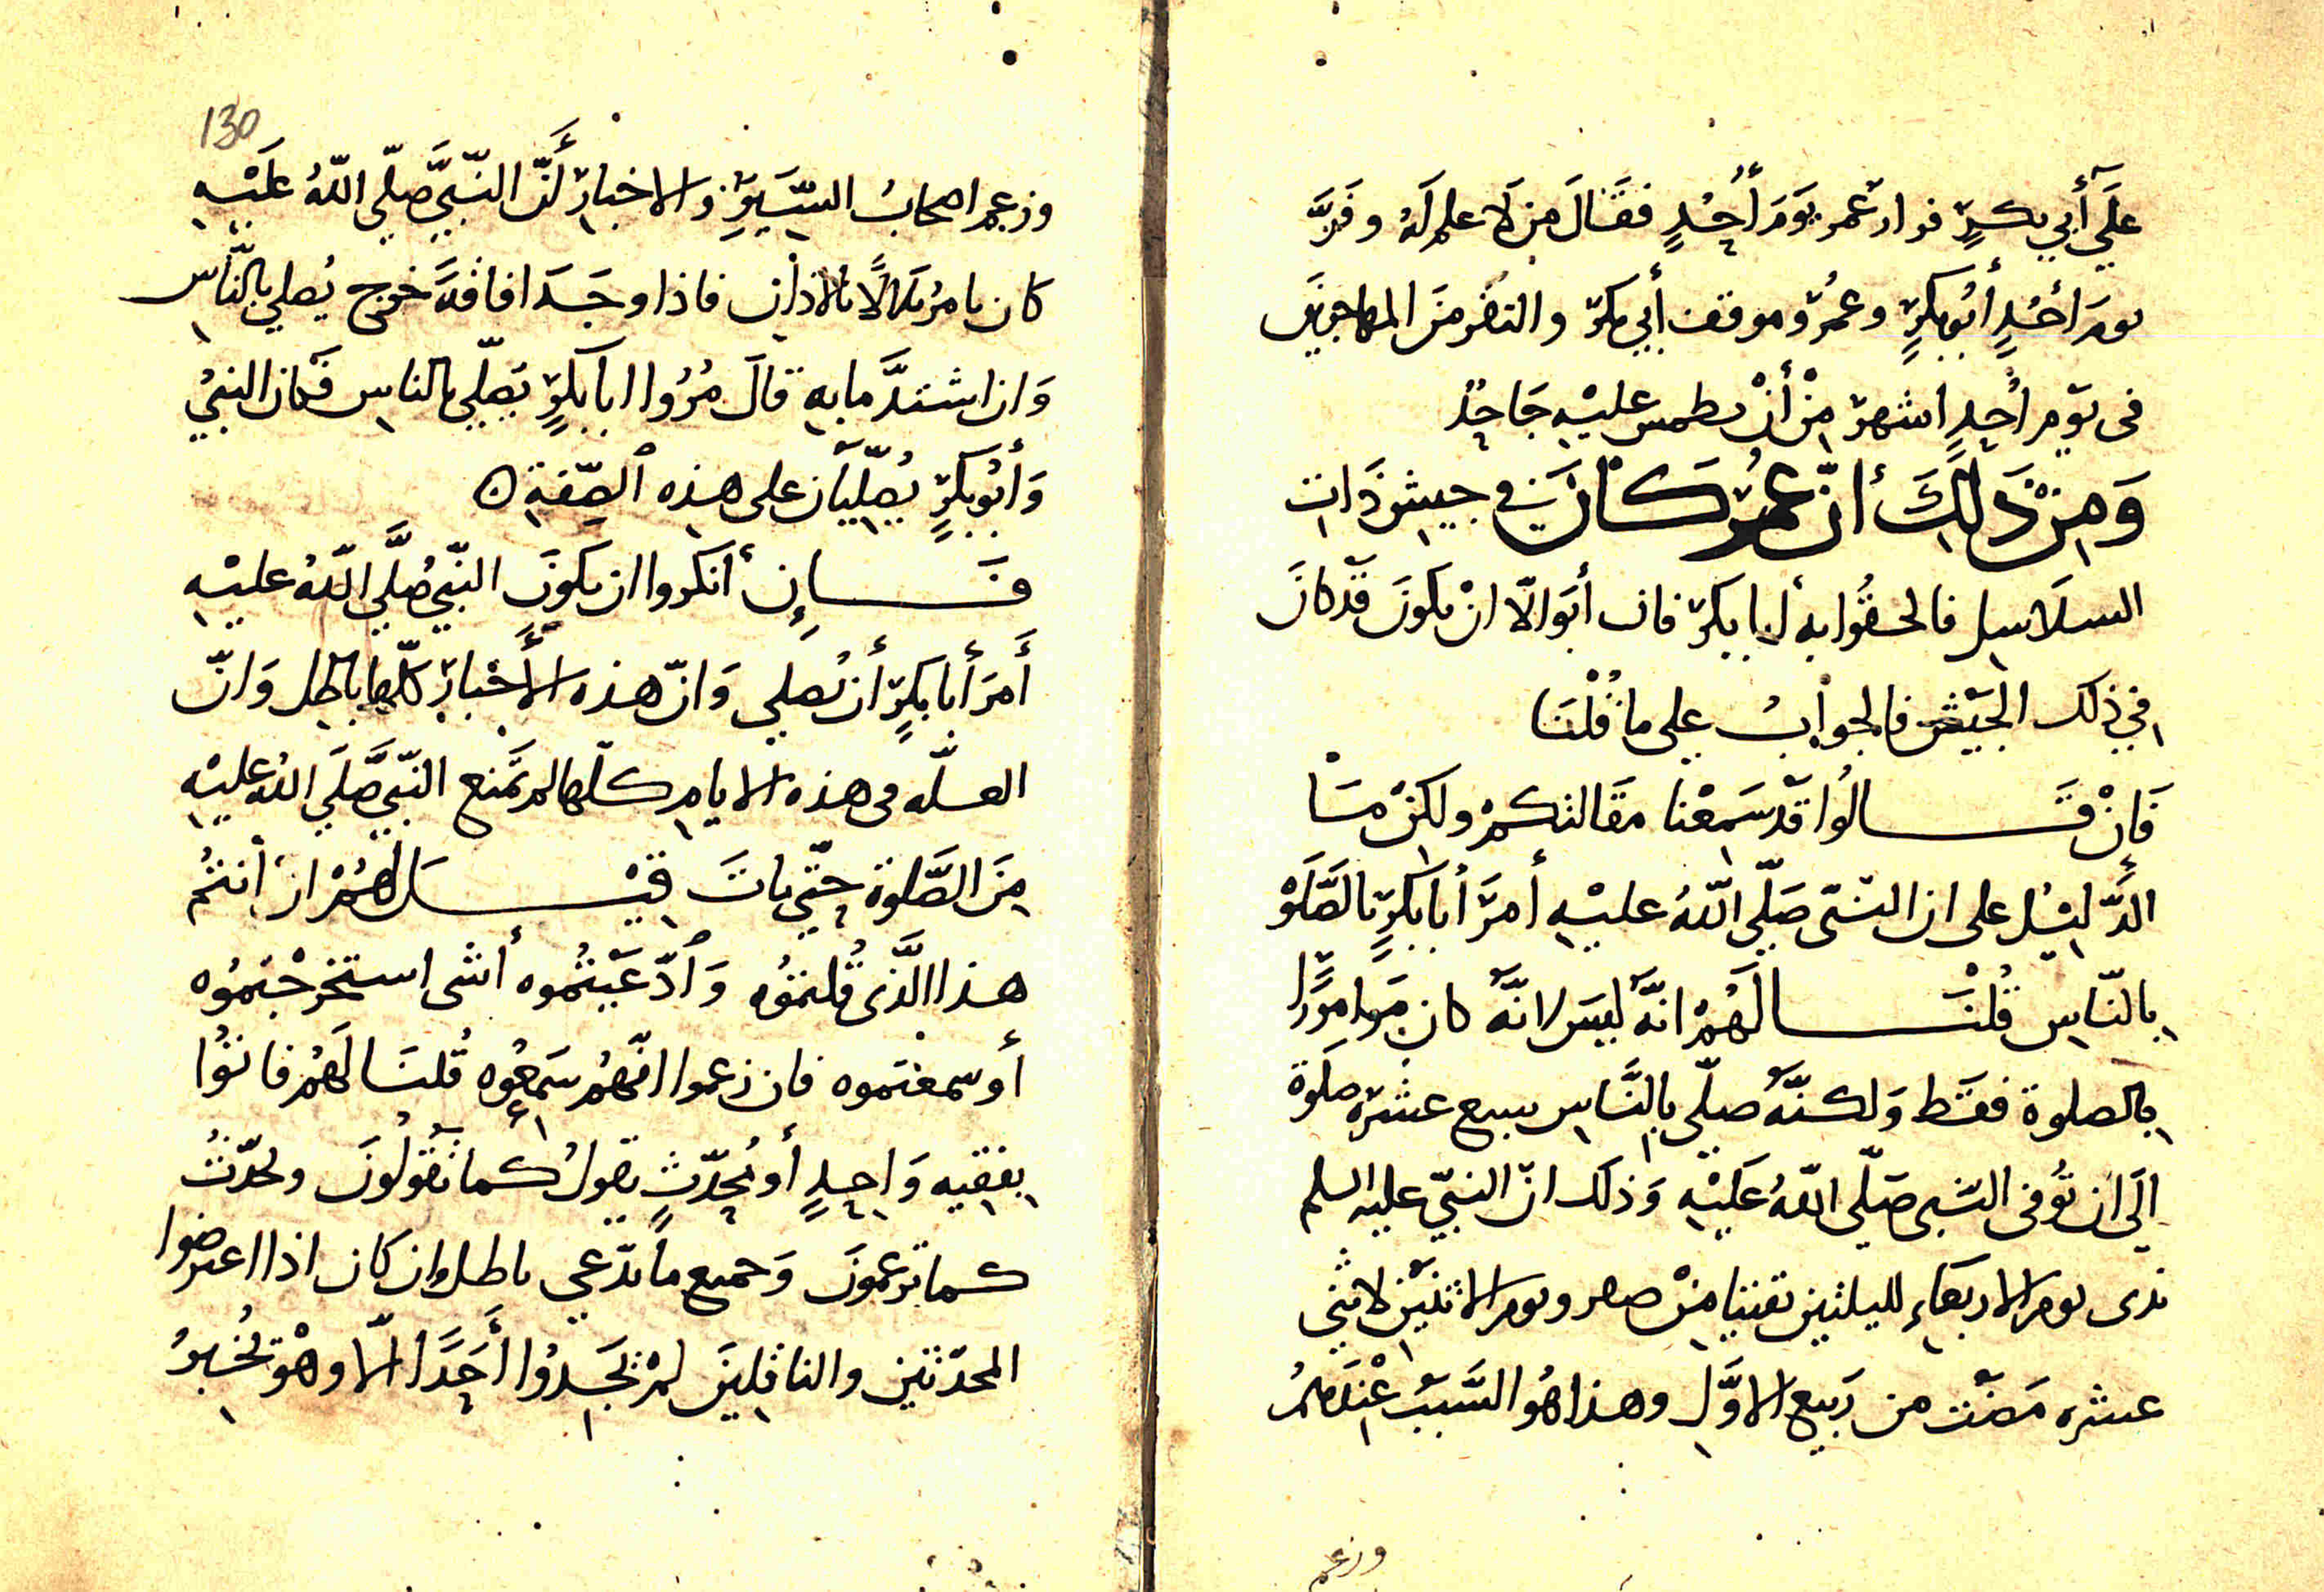 عَلَى أَبي بكرٍ فرار عمر يَوَمَ أُحُدٍ فقَالَ مَن لَا علم لَهُ وفَرَّ
يومَ أحُدٍ أبُو بكرٍ وعُمرُ وموقف أَبي بكرٍ والنفر مَن المهاجرينَ
فى يَوم أُحدٍ اشهر مِنْ أَنْ يطمس عليْهِ جَاحِدٌ
وَمِنْ ذَلِكَ أنّ عُمَر كَانَ في جيشِ ذَاتِ
السلَاسِل فالحقُوا بهِ أبا بكرٍ فان أبَوا الّا انْ يكونَ قَدْ كانَ
في ذلك الجَيْشِ فالجوابُ على ما قُلْنَا
فَانْ قَالُوا قَدْ سَمِعْنا مقَالتكمْ ولكنْ مَا
الدَّليْلِ على ان النبَّى صَلّى اللّهُ عليْهِ أمَرَ أبا بَكرٍ بالصَّلَوْ
بالنّاسِ قُلْنَا لَهُمْ انَّهُ ليسَ لانَّهُ كان مَوامورًا
بالصلوة فقَط وَلكنَّهُ صلّى بالنَّاسِ سبع عشرَه صلوَة
الَى ان تُوفى النبى صَلّى اللّهُ عَلَيْهِ وَذلك انّ النبيّ عليه السلم
بدى يوم الاربَعاءِ لليلتين بقيتا مِنْ صفر ويوم الاثنَيْنِ لاثنى
عشره مَضَت من رَبيع الاوَّلِ وهذا هُو السَّبَبُ عِنْدَهمُ
وزعم
130
وزعم اصحابُ السِّيَرِ والاخبارِ أَنّ النّبيَّ صلّى اللّهُ عَلَيْهِ
كان يامرُ بلالًا بالاذان فاذا وجَدَ افاقَةً خرج يُصلي بالنّاسِ
وَان اشتدَّ مابهِ قالَ مُرُوا ابا بكرٍ يصَلّى بالناسِ فَكان النبيُ
وَأبُو بَكرٍ يُصلِّيَان على هذِهِ الصِّفةِ ۞
فَإِن أنكروا ان يكونَ النّبيُ صَلَّى اللّهُ عليْهِ
أَمَرَ أبا بكرٍ أن يُصلي وَانّ هذه الأَخْبارَ كلّها باطل وَانّ
العلّه فى هذه الايام كلّها لم تمَنع النّبيَّ صَلَّى اللّهُ عليْهِ
مِنَ الصَّلوة حتّى ماتَ قِيْلَ لَهُمْ ان أنتُم
هذا الَّذى قُلتمُوُه وَادّعَيْتُموه أشى استخرجْتموُه
أو سمعتموه فان زعموا انّهُم سَمِعُوه قُلنَا لَهُمْ فاتوُا
بفقيه وَاحِدٍ أو مُحدِّثٍ يقولُ كما تقُوُلُونَ ويُحدّثُ
كما تزعمُونَ وَجميع ما تدّعي باطل وان كان اذا اعترضوا
المحدّثين والناقلينَ لمْ تجَدوُا أَحَدًا الّا وهْو يُخْبرُ